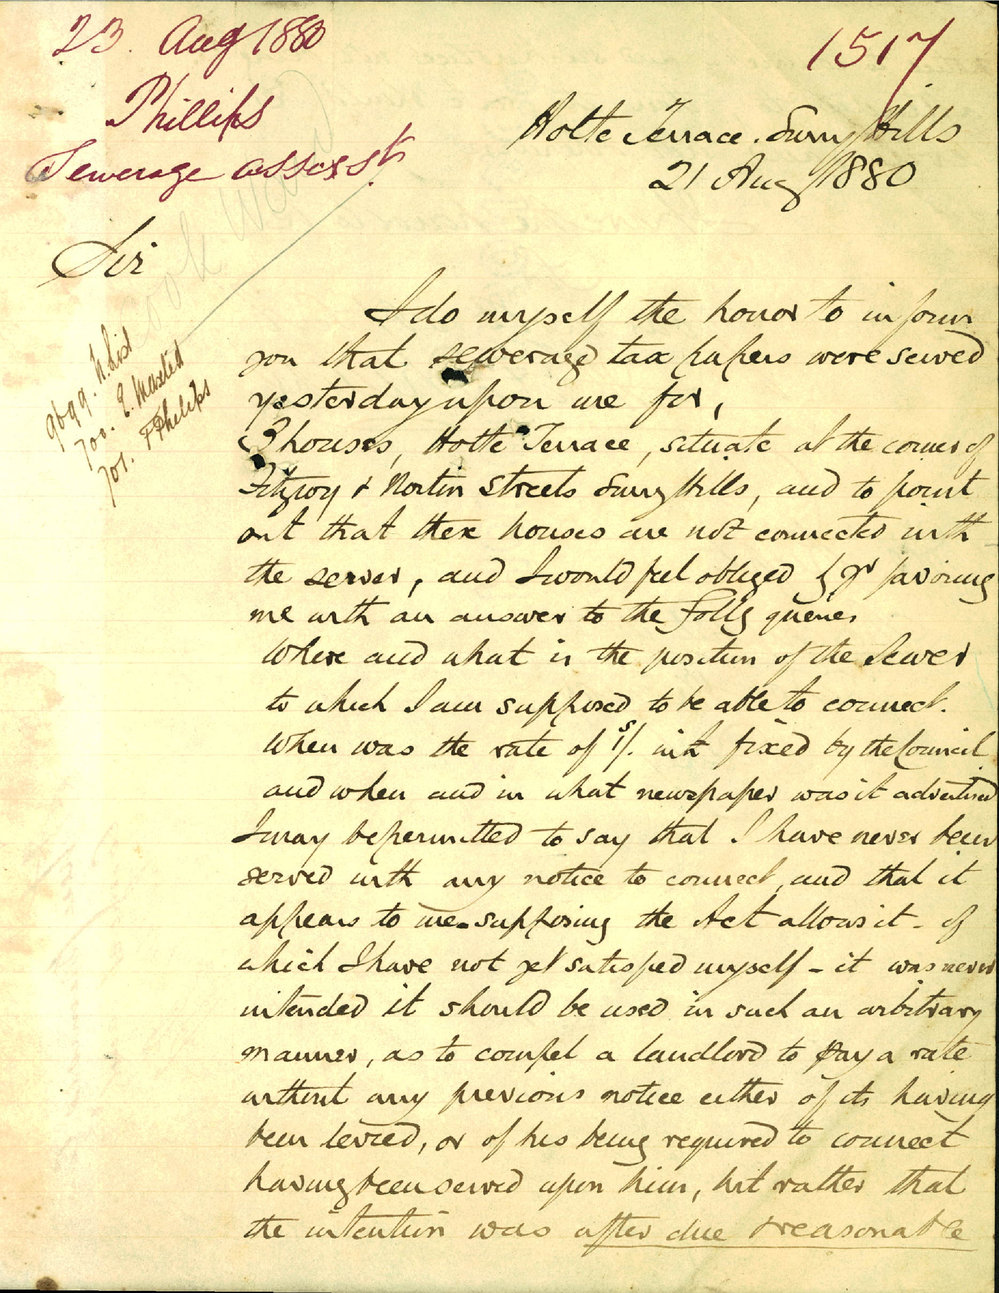 23. Aug 1880
1517
Phillips
Sewerage assesst
Holte Terrace. Surry Hills
21 Aug 1880
Sir
I do myself the honor to inform
you that sewerage tax papers were served
yesterday upon me for,
3 houses, Holte Terrace, situate at the corner of
Fitzroy & Nortin Streets Surry Hills, and to point
out that these houses are not connected with
the sewer, and I would feel obliged by yr favoring
me with an answer to the follg queries
Where and what is the position of the Sewer
to which I am supposed to be able to connect.
When was the rate of 1s/. inh fixed by the Council
and when and in what newspaper was it advertised
I may be permitted to say that I have never been
served with any notice to connect, and that it
appears to me - supposing the Act allows it - of
which I have not yet satisfied myself - it was never
intended it should be used in such an arbitrary
manner, as to compel a landlord to pay a rate
without any previous notice either of its having
been levied, or of his being required to connect
having been served upon him, but rather that
the intention was after due & reasonable
9699. N. List
700. E. Maxted
701. F Philips